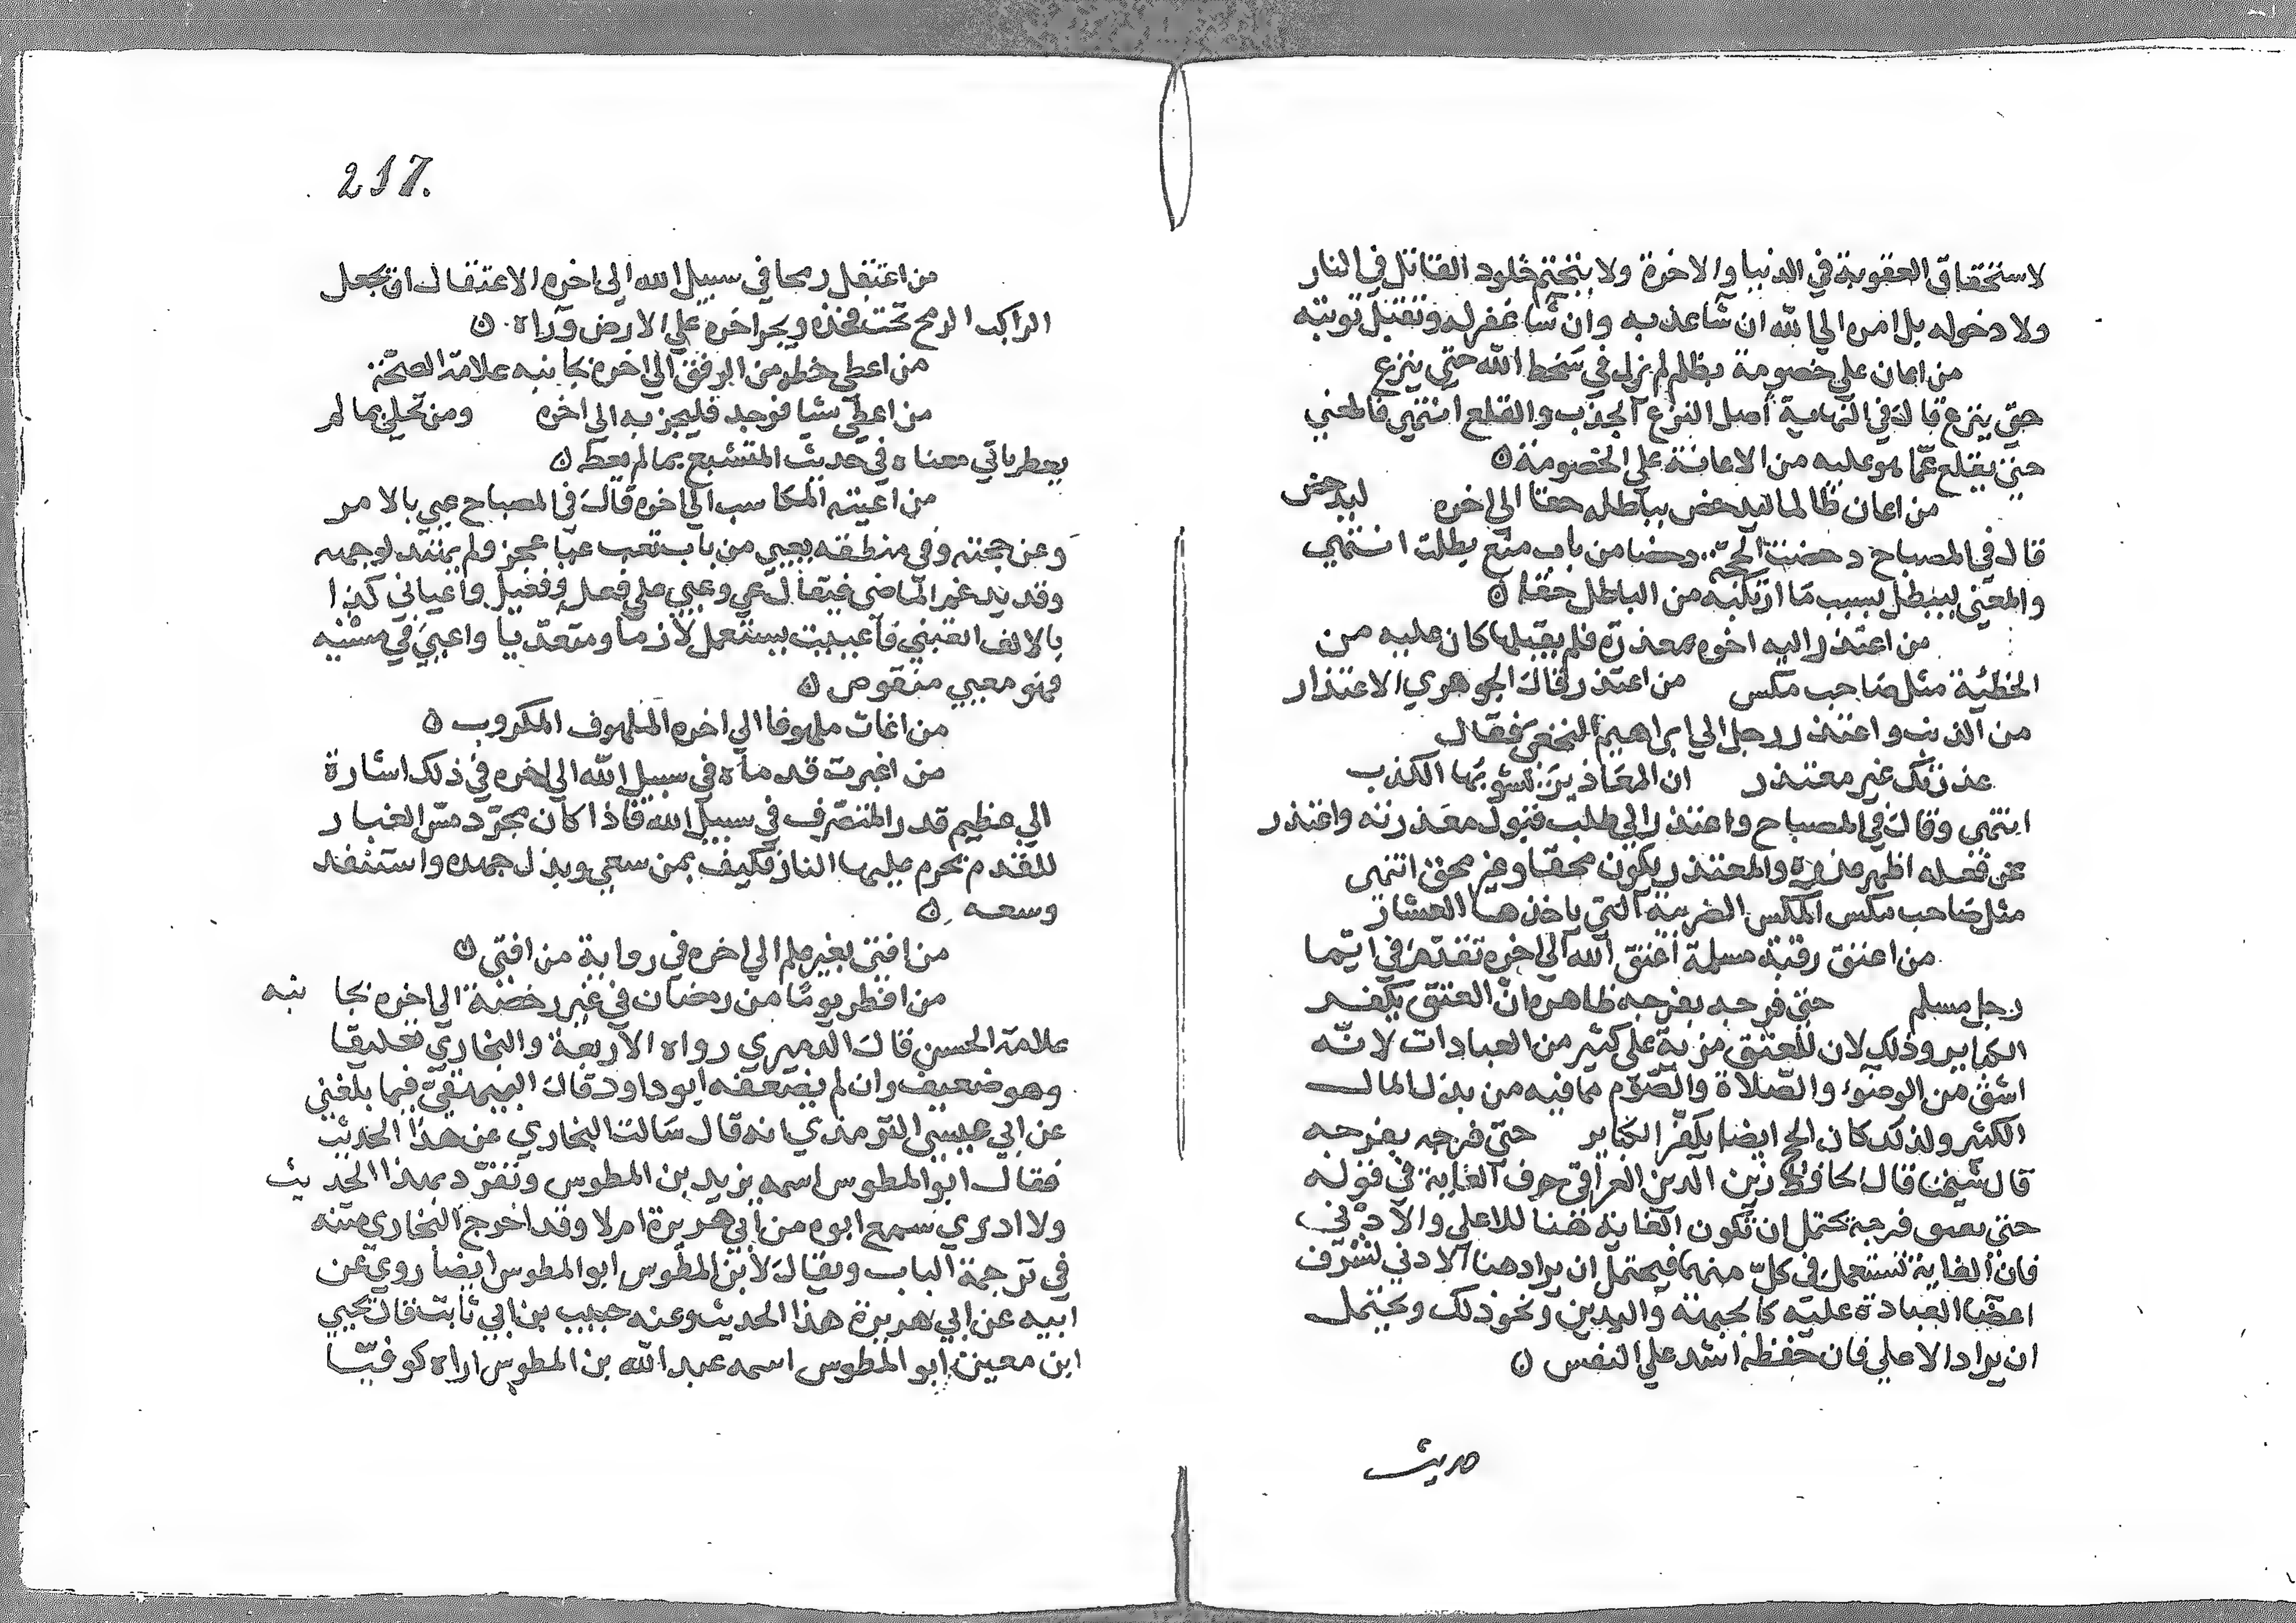 لاستحقاق العقوبة في الدنيا والاخرة ولا يتحتم خلود القاتل في النار
ولا دخوله بل امره الي الله ان شا عذبه وان شا غفر له وتقبل توبته
من اعان علي خصومة بظلم لم يزل في سخط الله حتي ينزع
حتي ينزع قال في النهاية اصل النزع الجذب والقلع انتهي فالمعني
حتي يقلع عما هو عليه من الاعانة علي الخصومة ه
من اعان ظالما ليدحض بباطله حقا الي اخره ليدحض
قال في المصباح دحضت الحجة دحضا من باب منع بطلت انتهي
والمعني ليبطل بسبب ما ارتكبه من الباطل حقا ه
من اعتذر اليه اخوه بمعذرة فلم يقبلها كان عليه من
الخطيئة مثل صاحب مكس من اعتذر قال الجوهري الاعتذار
من الذنب واعتذر رجل الي ابراهيم النخعي فقال
عذرتك غير معتذر ان المعاذير تشوبها الكذب
انتهي وقال في المصباح واعتذر الي طلب قبول معذرته واعتذر
عن فعله اظهر عذره والمعتذر يكون محقا وغير محق انتهي
مثل صاحب مكس المكس الضريبة التي ياخذها العشار
من اعتق رقبة مسلمة اعتق الله الي اخره تقدم في ايما
رجل مسلم حتي فرجه بفرجه ظاهره ان العتق يكفر
الكباير وذلك لان للعتق مزية علي كثير من العبادات لانه
اشق من الوضوء والصلاة والصوم لما فيه من بذل المال
الكثير ولذلك كان الحج ايضا يكفر الكباير حتي فرجه بفرجه
قال شيخنا قال الحافظ زين الدين العراقي حرف الغاية في قوله
حتي يعتق فرجه يحتمل ان تكون الغاية هنا للاعلي والادني
فان الغاية تستعمل في كل منهما فيحتمل ان يراد هنا الادني لشرف
اعضا العبادة عليه كالجبهة واليدين ونحو ذلك ويحتمل
ان يراد الاعلي فان حفظه اشد علي النفس ه
حديث
217.
من اعتقل رمحا في سبيل الله الي اخره الاعتقال ان يجعل
الراكب الرمح تحت فخذه ويجر اخره علي الارض وراه ه
من اعطي حظه من الرفق الي اخره بجانبه علامة الصحة
من اعطي شيا فوجد فليجز به الي اخره ومن تحلي بما لم
يعط ياتي معناه في حديث المتشبع بما لم يعط ه
من اعيته المكاسب الي اخره قال في المصباح عيي بالامر
وعن حجته وفي منطقه يعيي من باب تعب عيا عجز ولم يهتد لوجهه
وقد يدغم الماضي فيقال عي وعيي علي فعل وفعيل واعياني كذا
بالالف اتعبني فاعييت يستعمل لازما ومتعديا واعيي في مشيه
فهو معيي منقوص ه
من اغاث ملهوفا الي اخره الملهوف المكروب ه
من اغبرت قدماه في سبيل الله الي اخره في ذلك اشارة
الي عظيم قدر المتصرف في سبيل الله فاذا كان مجرد مس الغبار
للقدم تحرم عليها النار فكيف بمن سعي وبذل جهده واستنفد
وسعه ه
من افتي بغير علم الي اخره في رواية من افتي ه
من افطر يوما من رمضان في غير رخصة الي اخره بجانبه
علامة الحسن قال الدميري رواه الاربعة والبخاري تعليقا
وهو ضعيف وان لم يضعفه ابو داود قال البيهقي فيما بلغني
عن ابي عيسي الترمذي انه قال سالت البخاري عن هذا الحديث
فقال ابو المطوس اسمه يزيد بن المطوس وتفرد بهذا الحديث
ولا ادري سمع ابوه من ابي هريرة ام لا وقد اخرج البخاري متنه
في ترجمة الباب ويقال لابن المطوس ابو المطوس ايضا روي عن
ابيه عن ابي هريرة هذا الحديث وعنه حبيب بن ابي ثابت قال يحيي
ابن معين ابو المطوس اسمه عبد الله بن المطوس اراه كوفيا